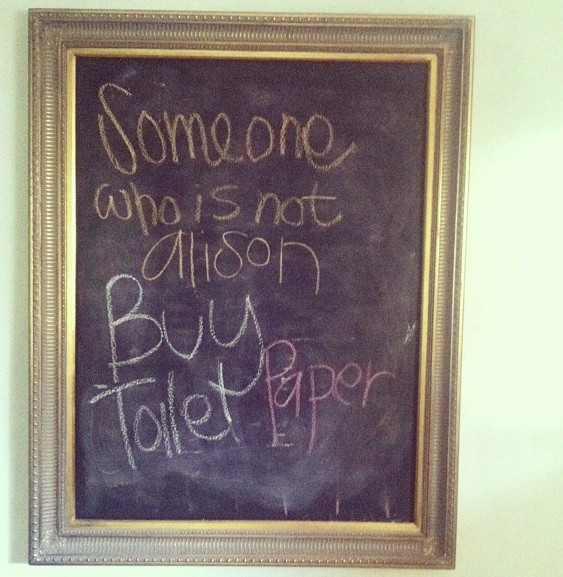 Someone
who is not
alison
Buy
Toilet Paper